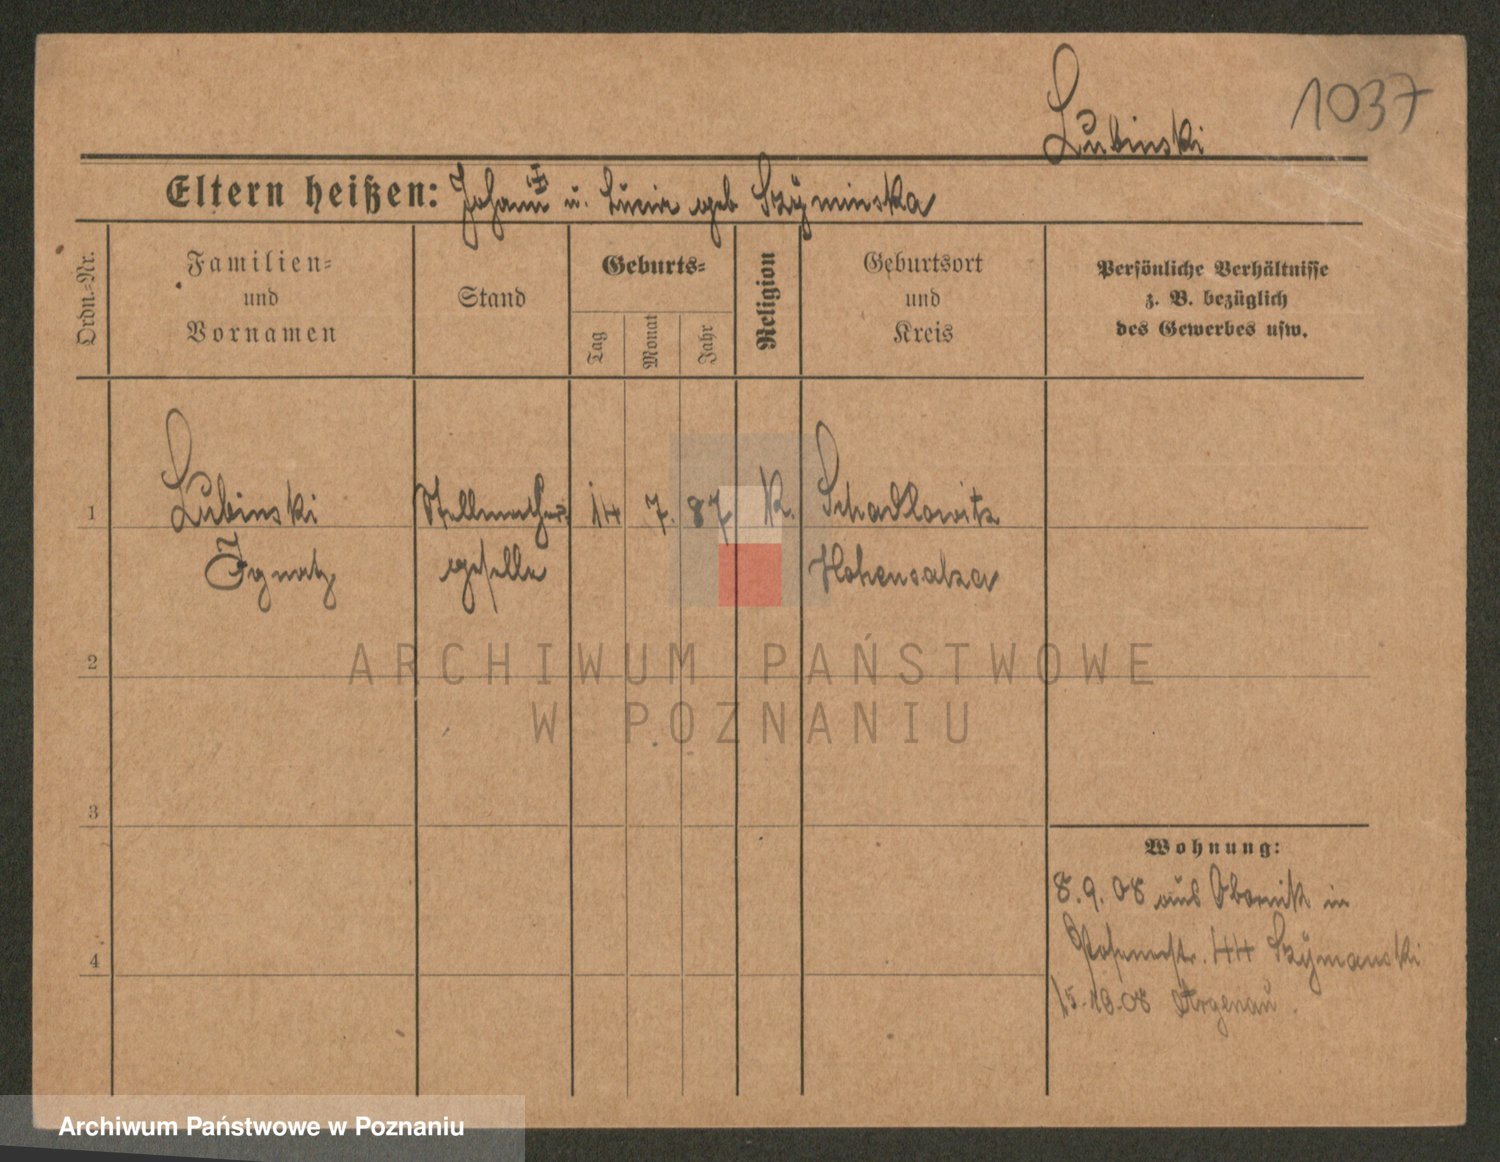 Lubinski
1037
Eltern heißen: Johann ‡ u. Lucia geb Szyminska
Ordn.-Nr.
Familien-
und
Vornamen
Stand
Geburts-
Tag
Monat
Jahr
Religion
Geburtsort
und
Kreis
Persönliche Verhältnisse
z. B. bezüglich
des Gewerbes usw.
1
Lubinski Stellmacher 14 7. 87 K. Schadlowitz
Ignatz geselle Hohensalza
2
ARCHIWUM PAŃSTWOWE
W POZNANIU
3
Wohnung:
8.9.08 aus Obornik in
Posenerstr. 44 Szymanski
4
15.10.08 Argenau.
Archiwum Państwowe w Poznaniu